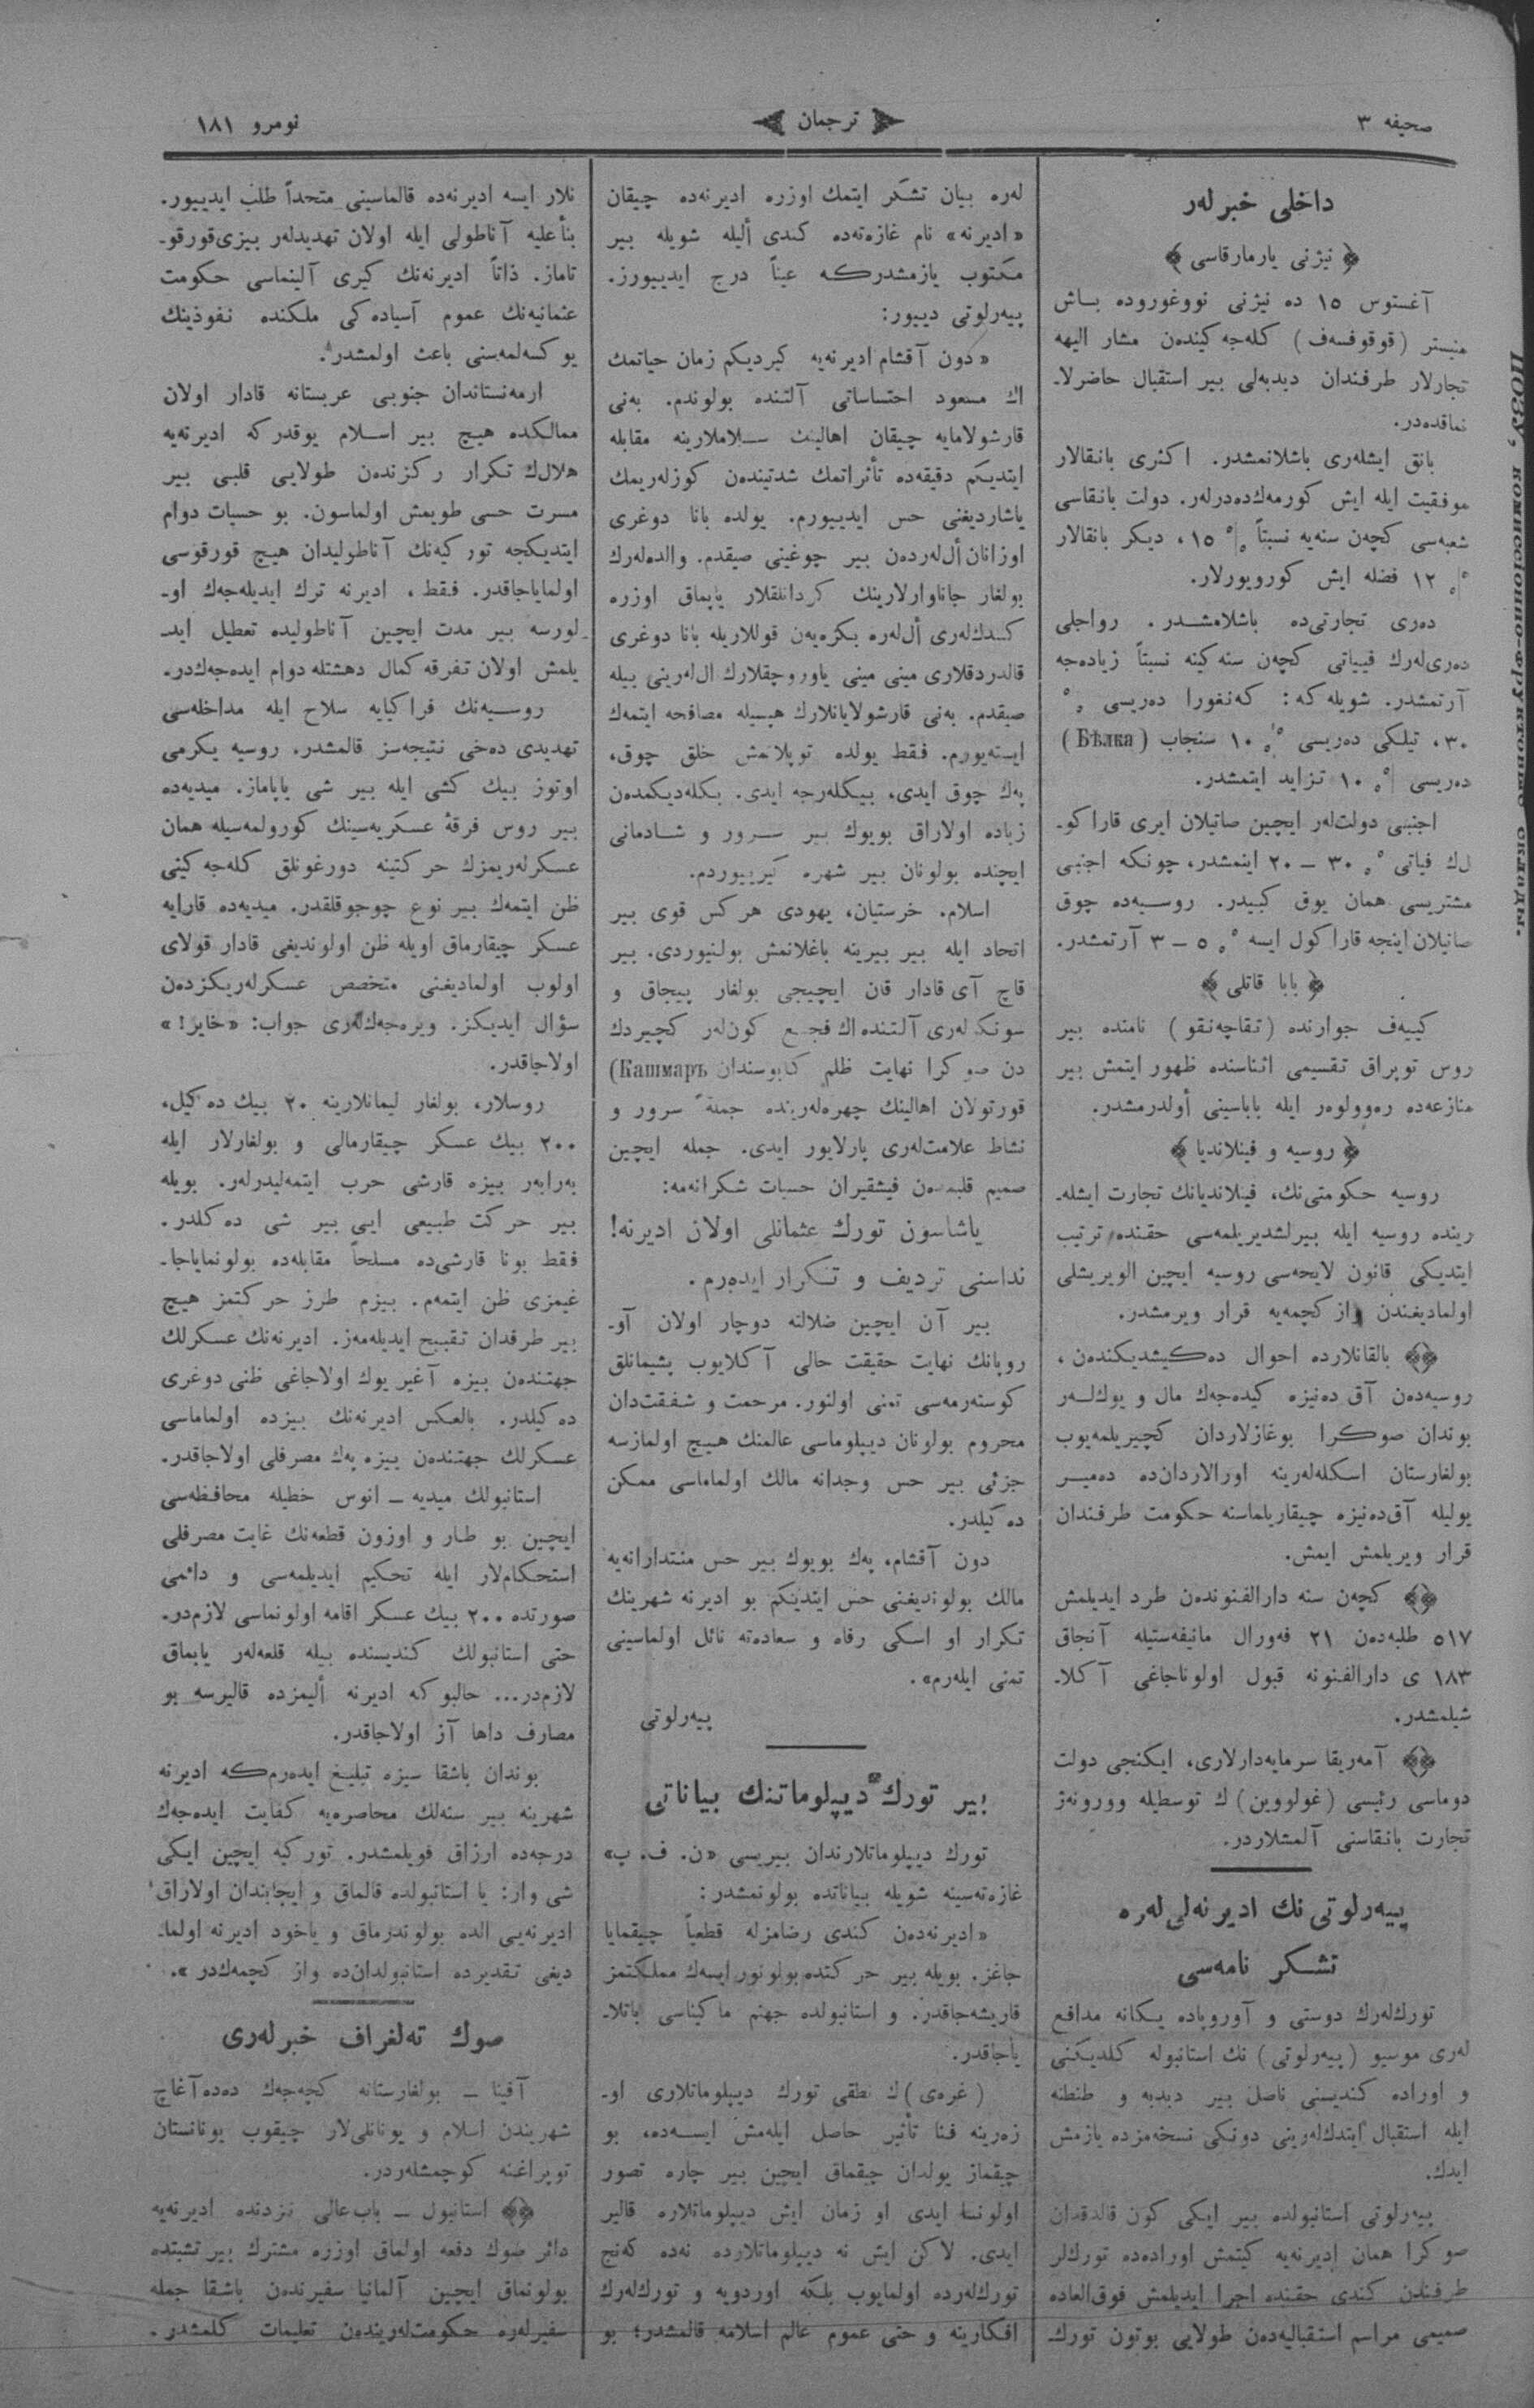 صحيفه ٣
ترجمان
نومرو ١٨١
داخلی خبرلەر
﴿ نيژنی يارمارقاسی ﴾
آغستوس ١٥ ده نيژنی نووغوروده بـاش
منيستر (قوقوفسەف) كلەجەكيندەن مشار اليهه
تجارلار طرفندان دبدبەلی بير استقبال حاضرلا۔
نماقدەدر.
بانق ايشلەری باشلانمشدر. اكثری بانقالار
موفقيت ايله ايش كورمەكدەدرلەر. دولت بانقاسی
شعبەسی كچەن سنەيه نسبتاً ٪ ١٥، ديكر بانقالار
٪ ١٢ فضله ايش كورويورلار.
دەری تجارتی‌ده باشلامشـدر. رواجلی
دەری‌لەرك فيياتی كچەن سنەكينه نسبتاً زيادەجه
آرتمشدر. شويله كه: كەنغورا دەريسی ٪
٣٠، تيلكی دەريسی ٪ ١٠ سنجاب (Бѣлка)
دەريسی ٪ ١٠ تزايد ايتمشدر.
اجنبی دولت‌لەر ايچين صاتيلان ايری قاراكو۔
ل‌ك فياتی ٪ ٣٠ — ٢٠ اينمشدر، چونكه اجنبی
مشتريسی همان يوق كبيدر. روسـيەده چوق
صاتيلان اينجه قاراكول ايسه ٪ ٥ — ٣ آرتمشدر.
﴿ بابا قاتلی ﴾
كييەف جوارنده (تقاچەنقو) نامنده بير
روس توپراق تقسيمی اثناسنده ظهور ايتمش بير
منازعەده رەوولوەر ايله باباسينی أولدرمشدر.
﴿ روسيه و فينلانديا ﴾
روسيه حكومتی‌نك، فينلانديانك تجارت ايشلە۔
رينده روسيه ايله بيرلشديريلمەسی حقنده ترتيب
ايتديكی قانون لايحەسی روسيه ايچين الويريشلی
اولماديغندن واز كچمەيه قرار ويرمشدر.
﴿﴾ بالقانلارده احوال دەكيشديكندەن،
روسيەدەن آق دەنيزه كيدەجەك مال و يوك‌لـەر
بوندان صوكرا بوغازلاردان كچيريلمەيوب
بولغارستان اسكلەلەرينه اورالاردان‌ده دەميـر
يوليله آق‌دەنيزه چيقاريلماسنه حكومت طرفندان
قرار ويريلمش ايمش.
﴿﴾ كچەن سنه دارالفنوندەن طرد ايديلمش
٥١٧ طلبەدەن ٢١ فەورال مانيفەستيله آنجاق
١٨٣ ی دارالفنونه قبول اولوناجاغی آكلا۔
شيلمشدر.
﴿﴾ آمەريقا سرمايەدارلاری، ايكنجی دولت
دوماسی رئيسی (غولووين) ك توسطيله وورونەژ
تجارت بانقاسنی آلمشلاردر.
پيەرلوتی‌نك اديرنەلی‌لەره
تشـكر نامەسی
تورك‌لەرك دوستی و آوروپاده يـكانه مدافع
لەری موسيو (پيەرلوتی) نك استانبوله كلديكنی
و اوراده كنديسنی ناصل بير دبدبه و طنطنه
ايله استقبال ايتدك‌لەرينی دونكی نسخەمزده يازمش
ايدك.
پيەرلوتی استانبولده بير ايكی كون قالدقدان
صوكرا همان اديرنەيه كيتمش اورادەده تورك‌لر
طرفندن كندی حقنده اجرا ايديلمش فوق‌العاده
صميمی مراسم استقباليەدەن طولايی بوتون تورك
لەره بيان تشكر ايتمك اوزره اديرنەده چيقان
«اديرنه» نام غازەتەده كندی أليله شويله بير
مكتوب يازمشدركه عيناً درج ايديیورز.
پيەرلوتی ديیور:
«دون آقشام اديرنەيه كيرديكم زمان حياتمك
اك مسعود احتساساتی آلتنده بولوندم. بەنی
قارشولامايه چيقان اهالينك سـلاملارينه مقابله
ايتديكم دقيقەده تأثراتمك شدتيندەن كوزلەريمك
ياشارديغنی حس ايديیورم. يولده بانا دوغری
اوزانان أل‌لەردەن بير چوغينی صيقدم. والدەلەرك
بولغار جاناوارلارينك كردانلقلار ياپماق اوزره
كسدك‌لەری أل‌لەره بكزەيەن قوللاريله بانا دوغری
قالدردقلاری مينی مينی ياوروجقلارك ال‌لەرينی بيله
صيقدم. بەنی قارشولايانلارك هپسيله مصافحه ايتمەك
ايستەيورم. فقط يولده توپلانمش خلق چوق،
پەك چوق ايدی، بيكلەرجه ايدی. بكلەديكمدەن
زياده اولاراق بويوك بير سـرور و شـادمانی
ايچنده بولونان بير شهره كيريیوردم.
اسلام. خرستيان، يهودی هركس قوی بير
اتحاد ايله بير بيرينه باغلانمش بولنيوردی. بير
قاچ آی قادار قان ايچيجی بولغار پيچاق و
سونكولەری آلتنده اك فجيع كون‌لەر كچيردك
دن صوكرا نهايت ظلم كابوسندان Кашмаръ)
قورتولان اهالينك چهرەلەرينده جملةً سرور و
نشاط علامت‌لەری پارلايور ايدی. جمله ايچين
صميم قلبمدەن فيشقيران حسيات شكرانەمه:
ياشاسون تورك عثمانلی اولان اديرنه!
نداسنی ترديف و تـكرار ايدەرم.
بير آن ايچين ضلالته دوچار اولان آو۔
روپانك نهايت حقيقت حالی آكلايوب پشيمانلق
كوستەرمەسی تمنی اولنور. مرحمت و شفقت‌دان
محروم بولونان ديپلوماسی عالمنك هيچ اولمازسه
جزئی بير حس وجدانه مالك اولماماسی ممكن
دەكيلدر.
دون آقشام، پەك بويوك بير حس منتدارانەيه
مالك بولونديغنی حس ايتديكم بو اديرنه شهرينك
تكرار او اسكی رفاه و سعادەته نائل اولماسينی
تمنی ايلەرم».
پيەرلوتی
بير تورك ديپلوماتنك بياناتی
تورك ديپلوماتلارندان بيريسی «ن. ف. پ»
غازەتەسينه شويله بياناتده بولونمشدر:
«اديرنەدەن كندی رضامزله قطعياً چيقمايا
جاغز. بويله بير حركتده بولونور ايسەك مملكتمز
قاريشەجاقدر. و استانبولده جهنم ماكيناسی باتلا۔
ياجاقدر.
(غرەی) ك نطقی تورك ديپلوماتلاری او۔
زەرينه فنا تأثير حاصل ايلەمش ايسـەده، بو
چيقماز يولدان چيقماق ايچين بير چاره تصور
اولونسا ايدی او زمان ايش ديپلوماتلاره قالير
ايدی. لاكن ايش نه ديپلوماتلارده نەده كەنج
تورك‌لەرده اولمايوب بلكه اوردويه و تورك‌لەرك
افكارينه و حتی عموم عالم اسلامه قالمشدر؛ بو
نلار ايسه اديرنەده قالماسينی متحداً طلب ايديیور.
بنأعليه آناطولی ايله اولان تهديدلەر بيزی قورقو۔
تاماز. ذاتاً اديرنەنك كيری آلينماسی حكومت
عثمانيەنك عموم آسيادەكی ملكنده نفوذينك
يوكسەلمەسنی باعث اولمشدر.
ارمەنستاندان جنوبی عربستانه قادار اولان
ممالكده هيچ بير اسـلام يوقدركه اديرنەيه
هلال‌ك تكرار ركزندەن طولايی قلبی بير
مسرت حسی طويمش اولماسون. بو حسيات دوام
ايتديكجه توركيەنك آناطوليدان هيچ قورقوسی
اولماياجاقدر. فقط، اديرنه ترك ايديلەجەك او۔
لورسه بير مدت ايچين آناطوليده تعطيل ايد۔
يلمش اولان تفرقه كمال دهشتله دوام ايدەجەك‌در.
روسـيەنك قراكيايه سلاح ايله مداخلەسی
تهديدی دەخی نتيجەسز قالمشدر. روسيه يكرمی
اوتوز بيك كشی ايله بير شی ياپاماز. ميديەده
بير روس فرقۀ عسكريەسينك كورولمەسيله همان
عسكرلەريمزك حركتينه دورغونلق كلەجەكينی
ظن ايتمەك بير نوع چوجوقلقدر. ميديەده قارايه
عسكر چيقارماق اويله ظن اولونديغی قادار قولای
اولوب اولماديغنی متخصص عسكرلەريكزدەن
سؤال ايديكز. ويرەجەك‌لەری جواب: «خاير!»
اولاجاقدر.
روسلار، بولغار ليمانلارينه ٢٠ بيك دەكيل،
٢٠٠ بيك عسكر چيقارمالی و بولغارلار ايله
بەرابەر بيزه قارشی حرب ايتمەليدرلەر. بويله
بير حركت طبيعی ايی بير شی دەكلدر.
فقط بونا قارشی‌ده مسلحاً مقابلەده بولونماياجا۔
غيمزی ظن ايتمەم. بيزم طرز حركتمز هيچ
بير طرفدان تقبيح ايديلەمەز. اديرنەنك عسكرلك
جهتندەن بيزه آغير يوك اولاجاغی ظنی دوغری
دەكيلدر. بالعكس اديرنەنك بيزده اولماماسی
عسكرلك جهتندەن بيزه پەك مصرفلی اولاجاقدر.
استانبولك ميديه — انوس خطيله محافظەسی
ايچين بو طار و اوزون قطعەنك غايت مصرفلی
استحكام‌لار ايله تحكيم ايديلمەسی و دائمی
صورتده ٢٠٠ بيك عسكر اقامه اولونماسی لازم‌در.
حتی استانبولك كنديسنده بيله قلعەلەر ياپماق
لازم‌در... حالبوكه اديرنه أليمزده قاليرسه بو
مصارف داها آز اولاجاقدر.
بوندان باشقا سيزه تبليغ ايدەرم‌كه اديرنه
شهرينه بير سنەلك محاصرەيه كفايت ايدەجەك
درجەده ارزاق قويلمشدر. توركيه ايچين ايكی
شی وار: يا استانبولده قالماق و ايجابندان اولاراق
اديرنەيی الده بولوندرماق و ياخود اديرنه اولما۔
ديغی تقديرده استانبولدان‌ده واز كچمەك‌در».
صوك تەلغراف خبرلەری
آفينا — بولغارستانه كچەجەك دەدەآغاچ
شهريندن اسلام و يونانلی‌لار چيقوب يونانستان
توپراغنه كوچمشلەردر.
﴿﴾ استانبول — باب‌عالی نزدنده اديرنەيه
دائر صوك دفعه اولماق اوزره مشترك بير تشبثده
بولونماق ايچين آلمانيا سفيرندەن باشقا جمله
سفيرلەره حكومت‌لەريندەن تعليمات كلمشدر.